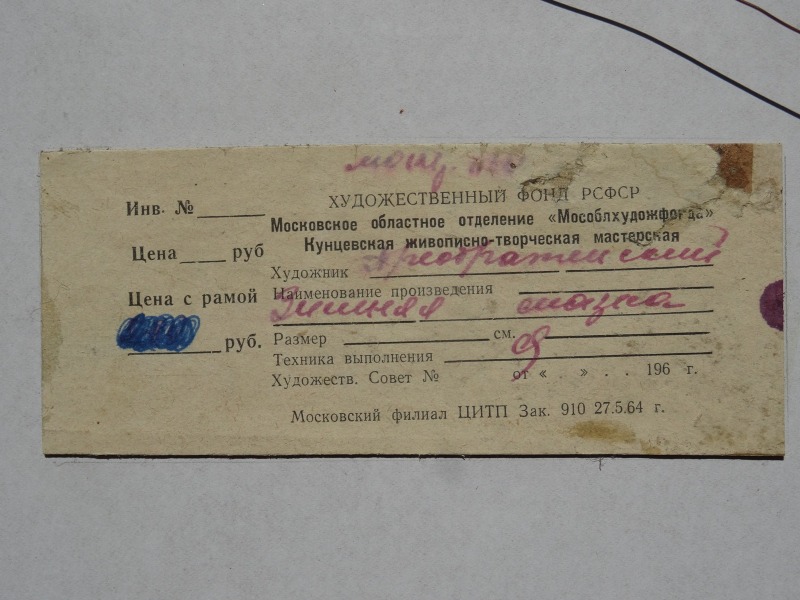 Инв. № ______
Цена ____ руб
Цена с рамой
________ руб.
ХУДОЖЕСТВЕННЫЙ ФОНД РСФСР
Московское областное отделение «Мособлхудожфонда»
Кунцевская живописно-творческая мастерская
Художник Преображенский
Наименование произведения
Зимняя сказка
Размер ________ см.
Техника выполнения
Художеств. Совет № от « . » . . 196 г.
Московский филиал ЦИТП Зак. 910 27.5.64 г.